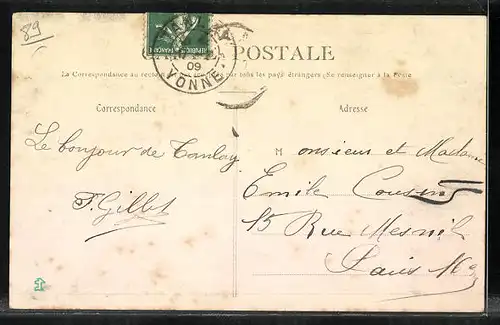 89
POSTALE
RÉPUBLIQUE FRANÇAISE
09
YONNE
La Correspondance au recto n'est pas tous les pays étrangers (Se renseigner à la Poste
Correspondance
Adresse
Le bonjour de Tanlay
F. Gillet
Monsieur et Madame
Emile Cousin
15 Rue Mesnil
Paris